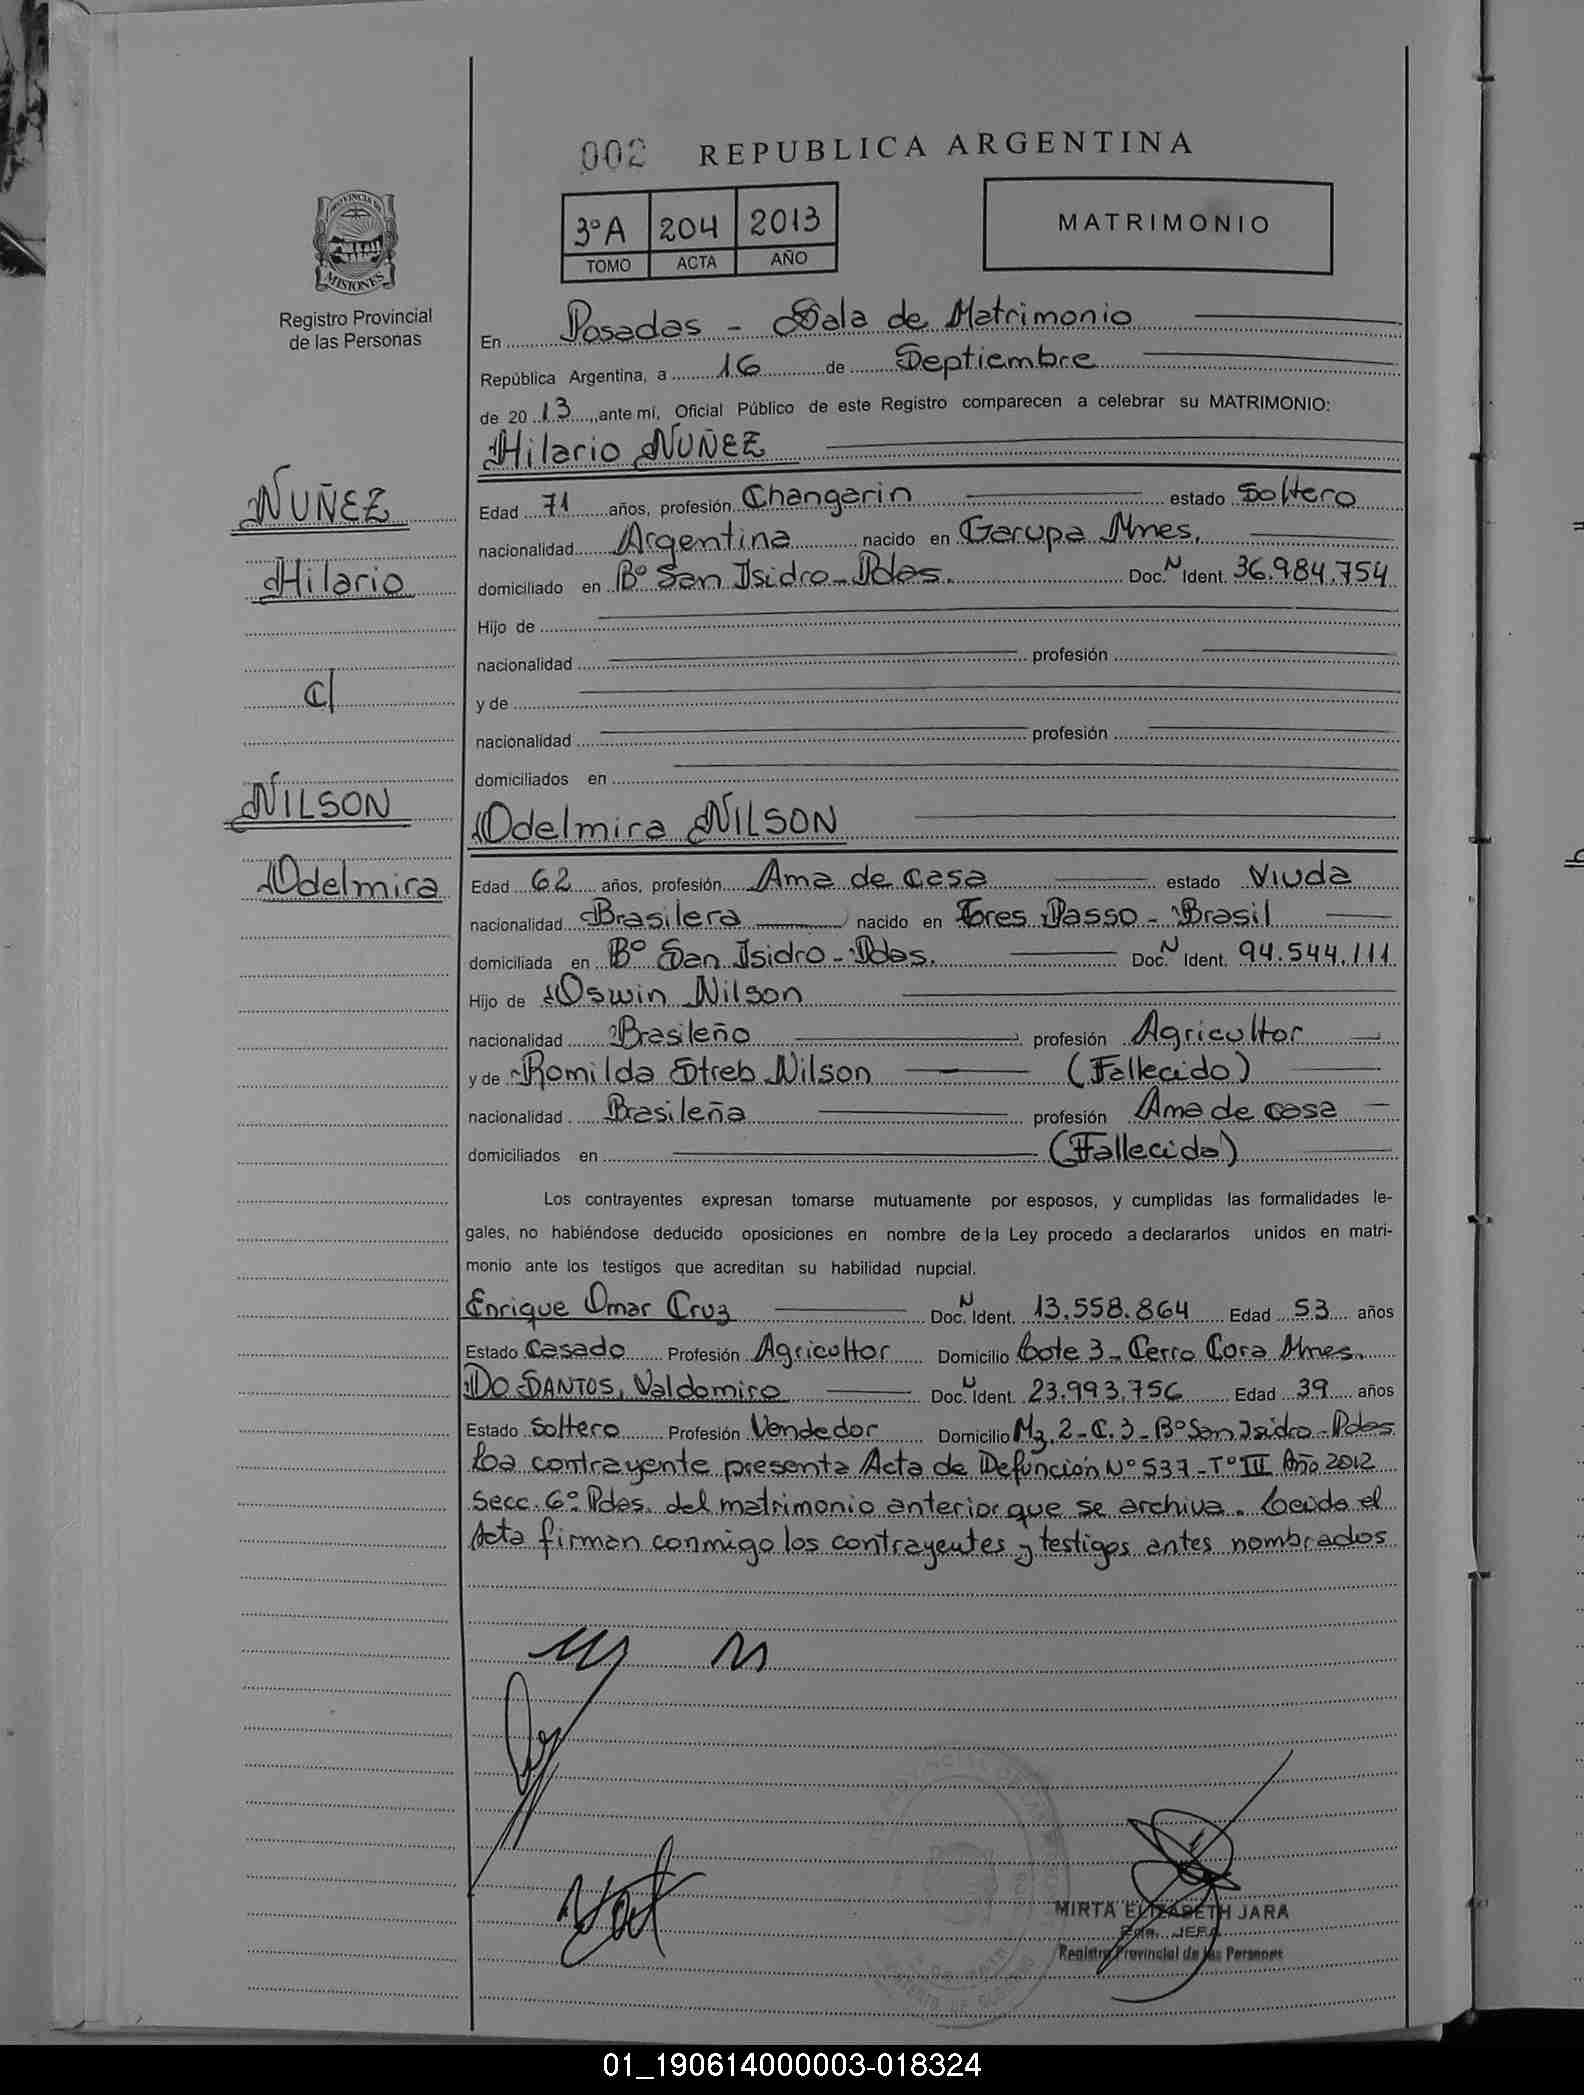 002 REPUBLICA ARGENTINA
3ºA 204 2013
TOMO ACTA AÑO
MATRIMONIO
PROVINCIA DE
MISIONES
Registro Provincial
de las Personas
En Posadas - Sala de Matrimonio
República Argentina, a 16 de Septiembre
de 20 13, ante mi, Oficial Público de este Registro comparecen a celebrar su MATRIMONIO:
Hilario NUÑEZ
NUÑEZ
Hilario
c/
NILSON
Odelmira
Edad 71 años, profesión Changarin estado Soltero
nacionalidad Argentina nacido en Garupa Mnes.
domiciliado en Bº San Isidro - Pdas. Doc. N Ident. 36.984.754
Hijo de
nacionalidad profesión
y de
nacionalidad profesión
domiciliados en
Odelmira NILSON
Edad 62 años, profesión Ama de casa estado Viuda
nacionalidad Brasilera nacido en Tres Passo - Brasil
domiciliada en Bº San Isidro - Pdas. Doc. N Ident. 94.544.111
Hijo de Oswin Nilson
nacionalidad Brasileño profesión Agricultor
y de Romilda Streb Nilson (Fallecido)
nacionalidad Brasileña profesión Ama de casa
domiciliados en (Fallecida)
Los contrayentes expresan tomarse mutuamente por esposos, y cumplidas las formalidades le-
gales, no habiéndose deducido oposiciones en nombre de la Ley procedo a declararlos unidos en matri-
monio ante los testigos que acreditan su habilidad nupcial.
Enrique Omar Cruz Doc. N Ident. 13.558.864 Edad 53 años
Estado Casado Profesión Agricultor Domicilio Lote 3 - Cerro Cora Mnes.
DO SANTOS, Valdomiro Doc. N Ident. 23.993.756 Edad 39 años
Estado Soltero Profesión Vendedor Domicilio Mz. 2 - C. 3 - Bº San Isidro - Pdas
La contrayente presenta Acta de Defunción Nº 537 - Tº III Año 2012
Secc. 6º Pdas. del matrimonio anterior que se archiva. Leida el
Acta firman conmigo los contrayentes y testigos antes nombrados
MIRTA ELIZABETH JARA
JEFA
Registro Provincial de las Personas
01_190614000003-018324